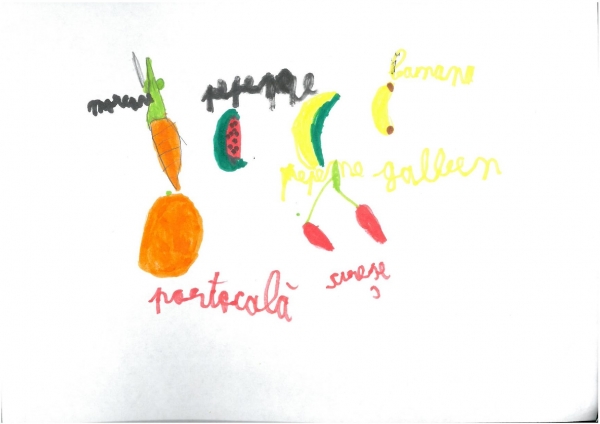 pepene
banane
pepene galben
portocală
cireșe